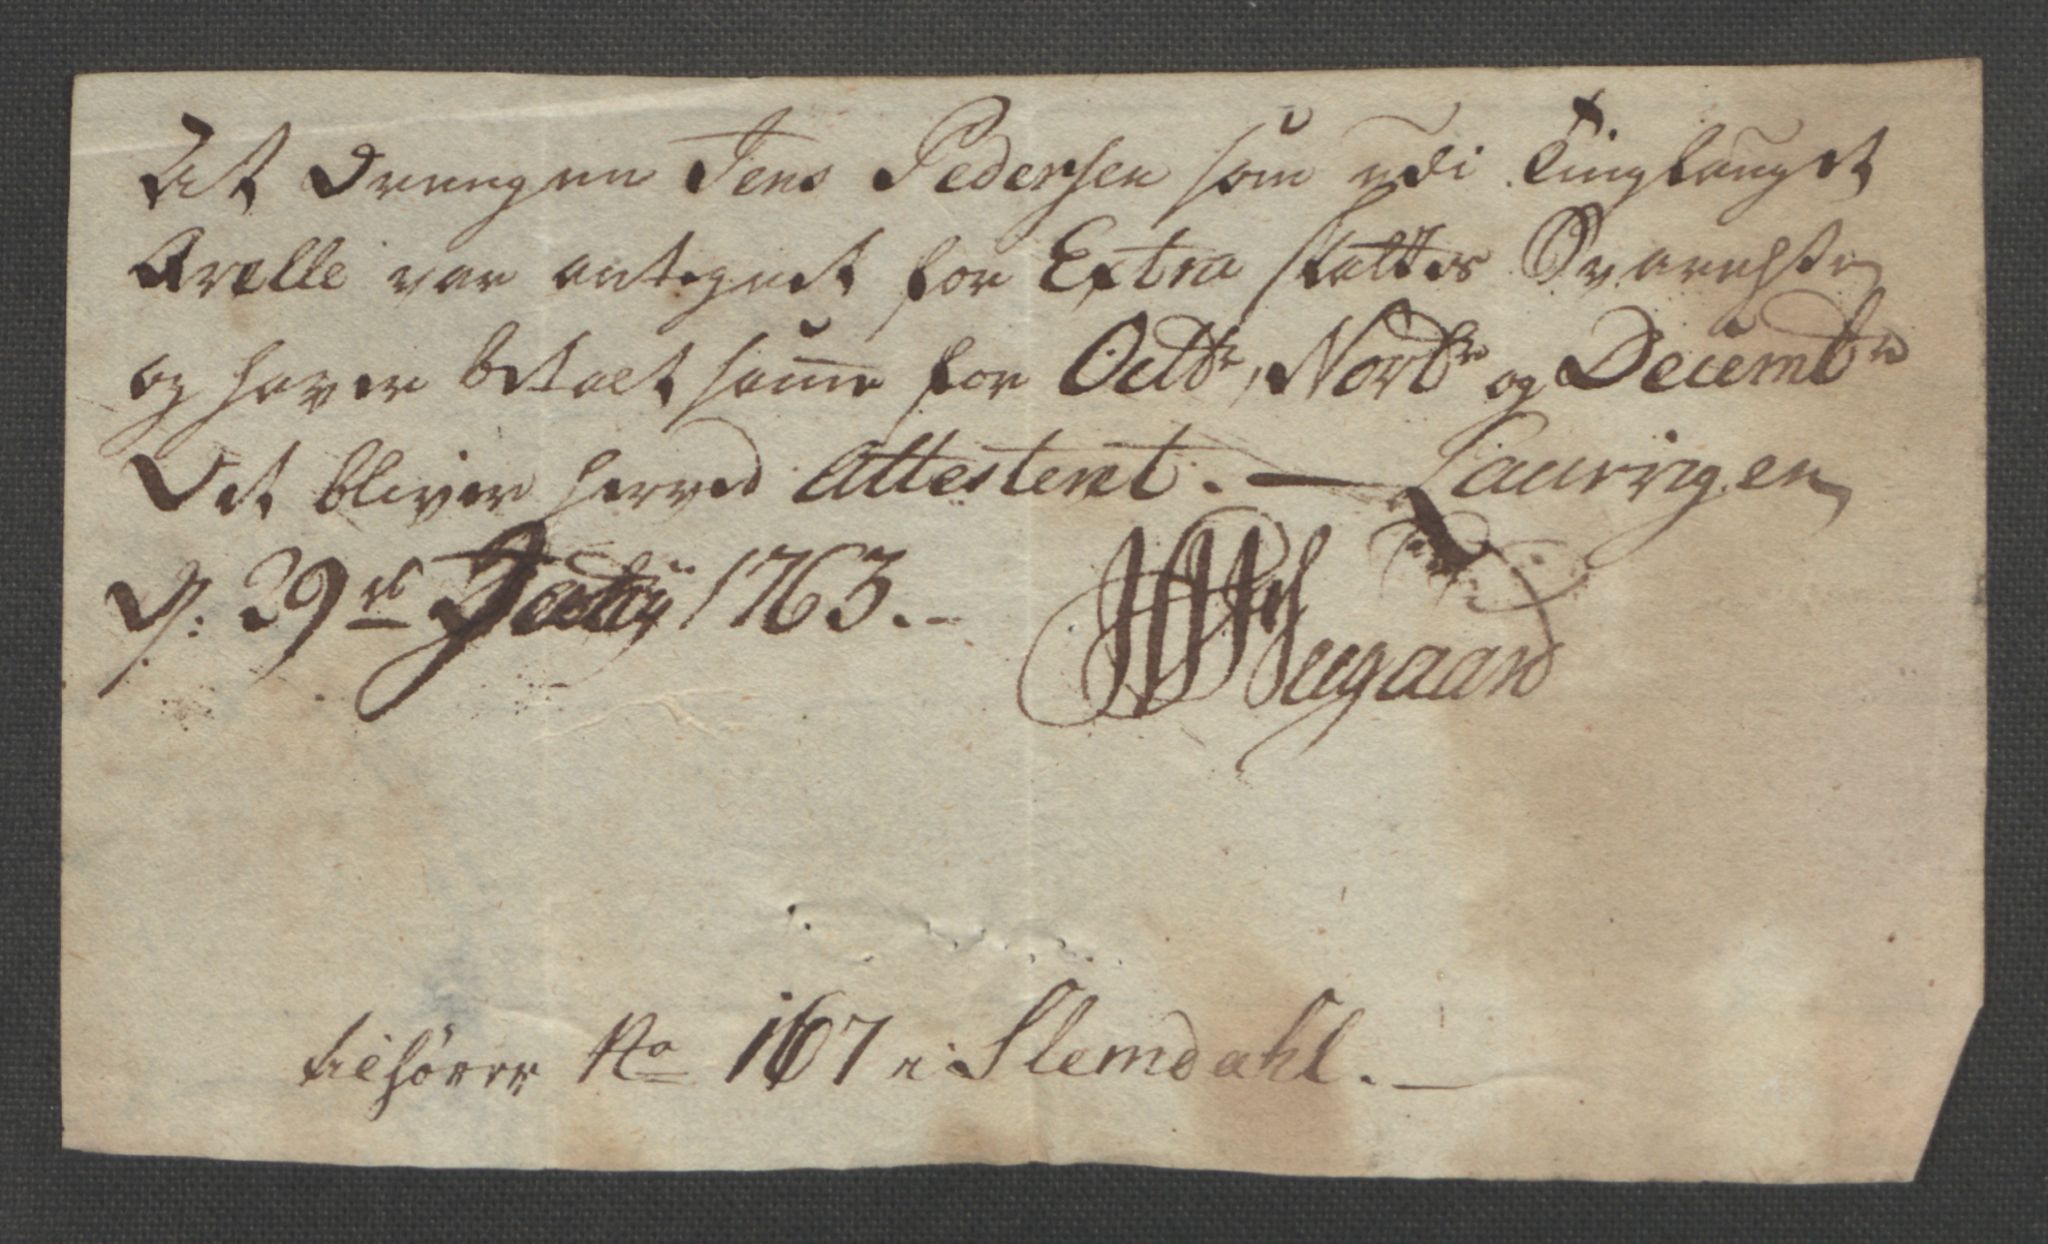 At Drengen Jens Pedersen som udi Tinglauget
Qvelle var antegnet for Extra skattes Svarelse
og haver betalt samme for Octbr, Novbr og Decembr
Det bliver herved Attesteret. — Laurvigen
D. 29de 1763. —
tilhører No 167 i Slemdahl. —